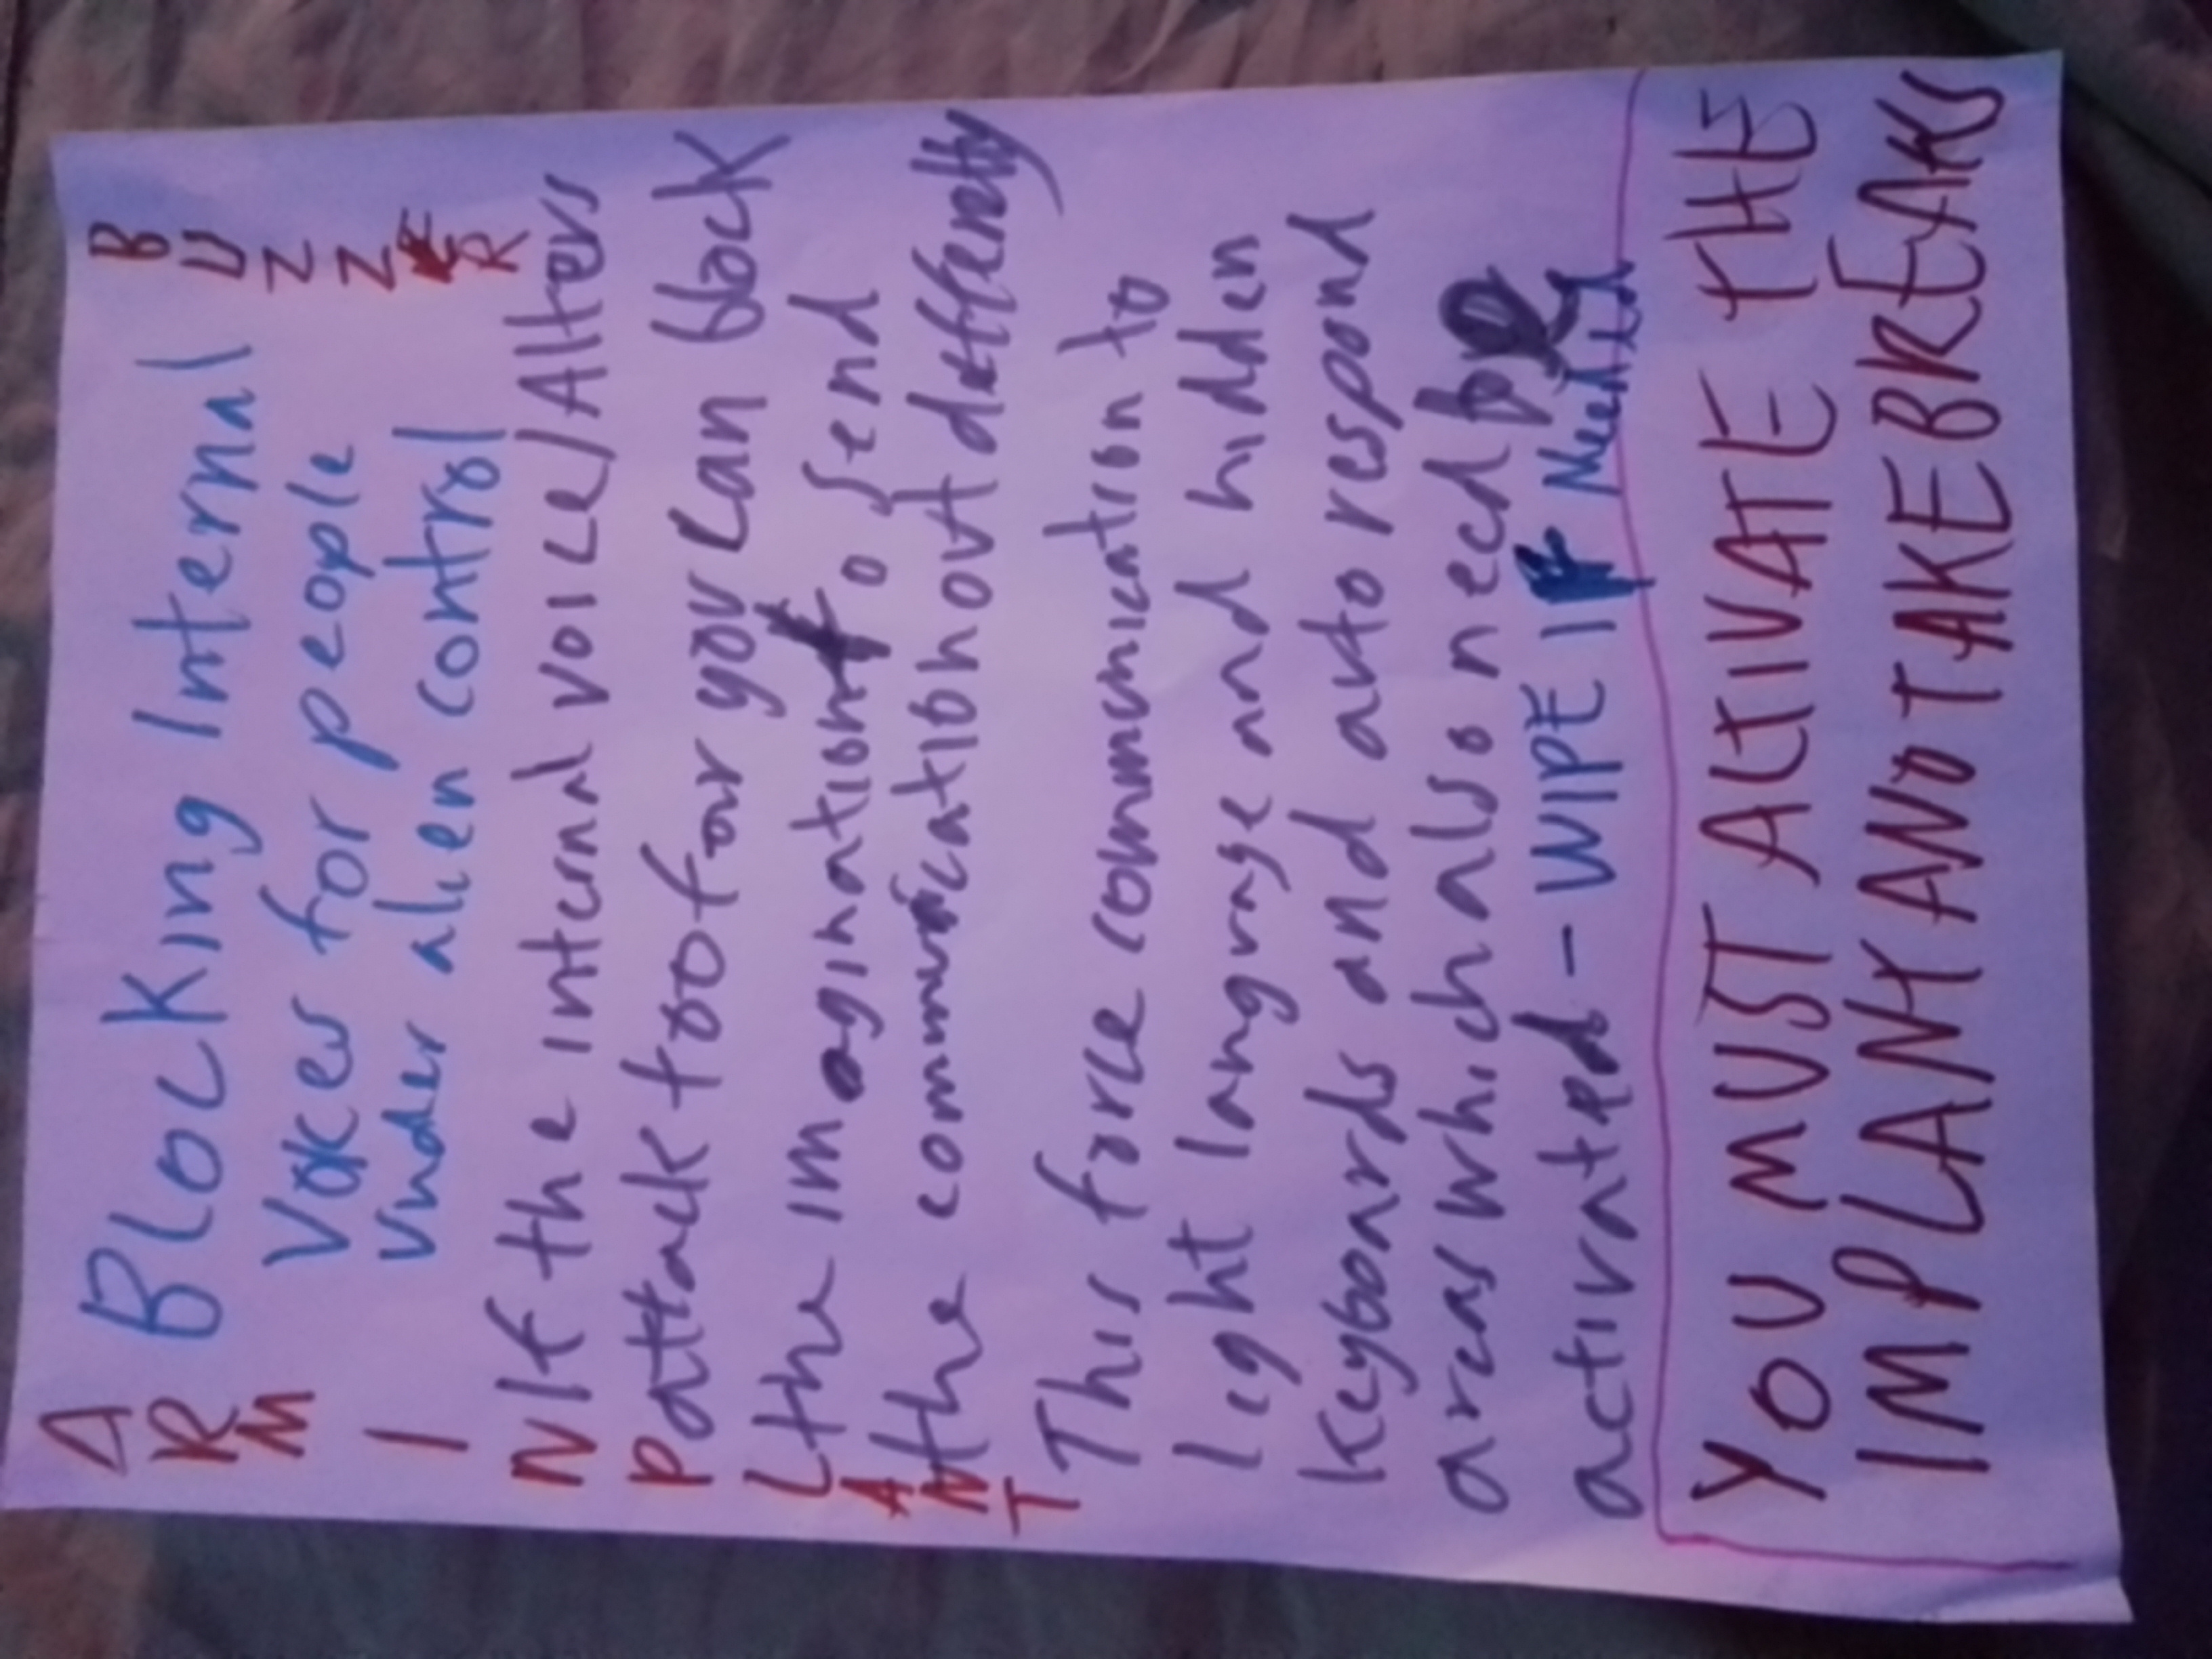 ARM IMPLANT
BUZZER
Blocking Internal
Voices for people
under alien control
If the internal voice/Alters
attack too far you can block
the imagination to send
the communication out differently
This force communication to
light language and hidden
keyboards and auto respond
areas which also need be
activated - WIPE If Needed
YOU MUST ACTIVATE THE
IMPLANT AND TAKE BREAKS